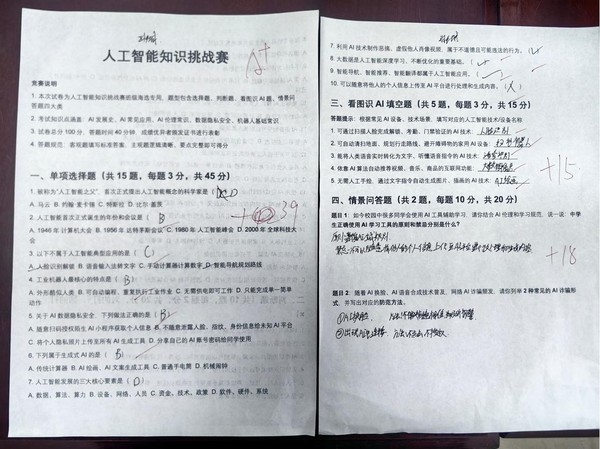 人工智能知识挑战赛
A+
竞赛说明
1. 本次试卷为人工智能知识挑战赛班级海选专用，题型包含选择题、判断题、看图识 AI 题、情景问
答题四大类
2. 考试知识点涵盖 AI 发展史、AI 常见应用、AI 伦理常识、数据隐私安全、机器人基础常识
3. 试卷总分 100 分，答题时间 40 分钟，成绩优异者颁发证书进行表彰
4. 答题规范：客观题填写标准答案，主观题逻辑清晰、要点完整即可得分
一、单项选择题（共 15 题，每题 3 分，共 45 分）
1. 被称为“人工智能之父”，首次正式提出人工智能概念的科学家是（
A. 马云 B. 约翰·麦卡锡 C. 特斯拉 D. 比尔·盖茨
2. 人工智能首次正式诞生的年份和会议是（ B
39
A. 1946 年计算机大会 B. 1956 年达特茅斯会议 C. 1980 年人工智能峰会 D. 2000 年全球科技大
会
3. 以下不属于人工智能典型应用的是（ C ）
A. 人脸识别解锁 B. 语音输入法转文字 C. 手动计算器计算数字 D. 智能导航规划路线
4. 工业机器人最核心的特点是（ B ）
A. 外形酷似人类 B. 可自动编程、重复执行工业作业 C. 无需供电即可工作 D. 只能完成单一简单
动作
5. 关于 AI 数据隐私安全，下列做法正确的是（ B ）
A. 随意扫码授权陌生 AI 小程序获取个人信息 B. 不随意泄露人脸、指纹、身份信息给未知 AI 平台
C. 将个人隐私照片上传至所有 AI 生成工具 D. 分享自己的 AI 账号密码给同学使用
6. 下列属于生成式 AI 的是（ B ）
A. 传统计算器 B. AI 绘画、AI 文案生成工具 C. 普通手电筒 D. 机械闹钟
7. 人工智能发展的三大核心要素是（ D ）
A. 数据、算法、算力 B. 设备、网络、人员 C. 资金、技术、政策 D. 软件、硬件、系统
7. 利用 AI 技术制作恶搞、虚假他人肖像视频，属于不道德且可能违法的行为。（
8. 大数据是人工智能深度学习、不断优化的重要基础。（
9. 智能导航、智能推荐、智能翻译都属于人工智能应用。（
10. 可以随意将他人的个人信息上传至 AI 平台进行处理和生成内容。（
三、看图识 AI 填空题（共 5 题，每题 3 分，共 15 分）
答题提示：根据常见 AI 设备、技术场景，填写对应的人工智能技术/设备名称
1. 可通过扫描人脸完成解锁、考勤、门禁验证的 AI 技术：人脸识别
2. 可自动清扫地面、规划行走路线、避开障碍物的家用 AI 设备：
3. 能将人类语音实时转化为文字，听懂语音指令的 AI 技术：
4. 依靠 AI 算法自动推荐视频、音乐、商品的互联网功能：
5. 无需人工手绘，通过文字指令自动生成图片、插画的 AI 技术：
+15
四、情景问答题（共 2 题，每题 10 分，共 20 分）
题目 1：如今校园中很多同学会使用 AI 工具辅助学习，请你结合 AI 伦理和学习规范，谈一谈：中学
生正确使用 AI 学习工具的原则和禁忌分别是什么？
+18
题目 2：随着 AI 换脸、AI 语音合成技术普及，网络 AI 诈骗频发，请你列举 2 种常见的 AI 诈骗形
式，并写出对应的防范方法。